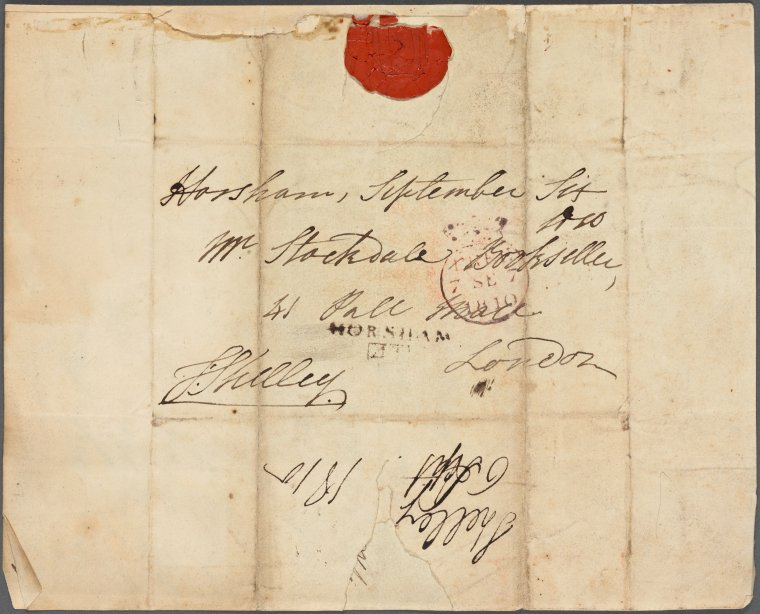 Horsham, September Six
1810
Mr Stockdale Bookseller,
41 Pall Mall
London
TShelley.
HORSHAM
FREE
7 SE 7
1810
Shelley
6 Sept
1810